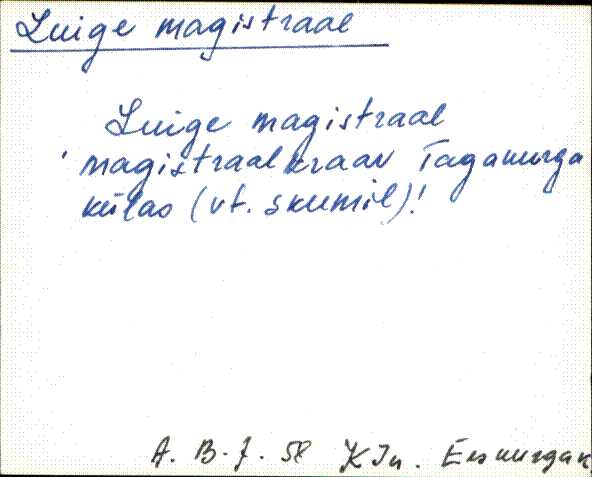 Luige magistraal
Luige magistraal
magistraalkraav Taganurga
külas (vt. skeemil)!
A. B-7. 58 KJn. Eesnurga k.